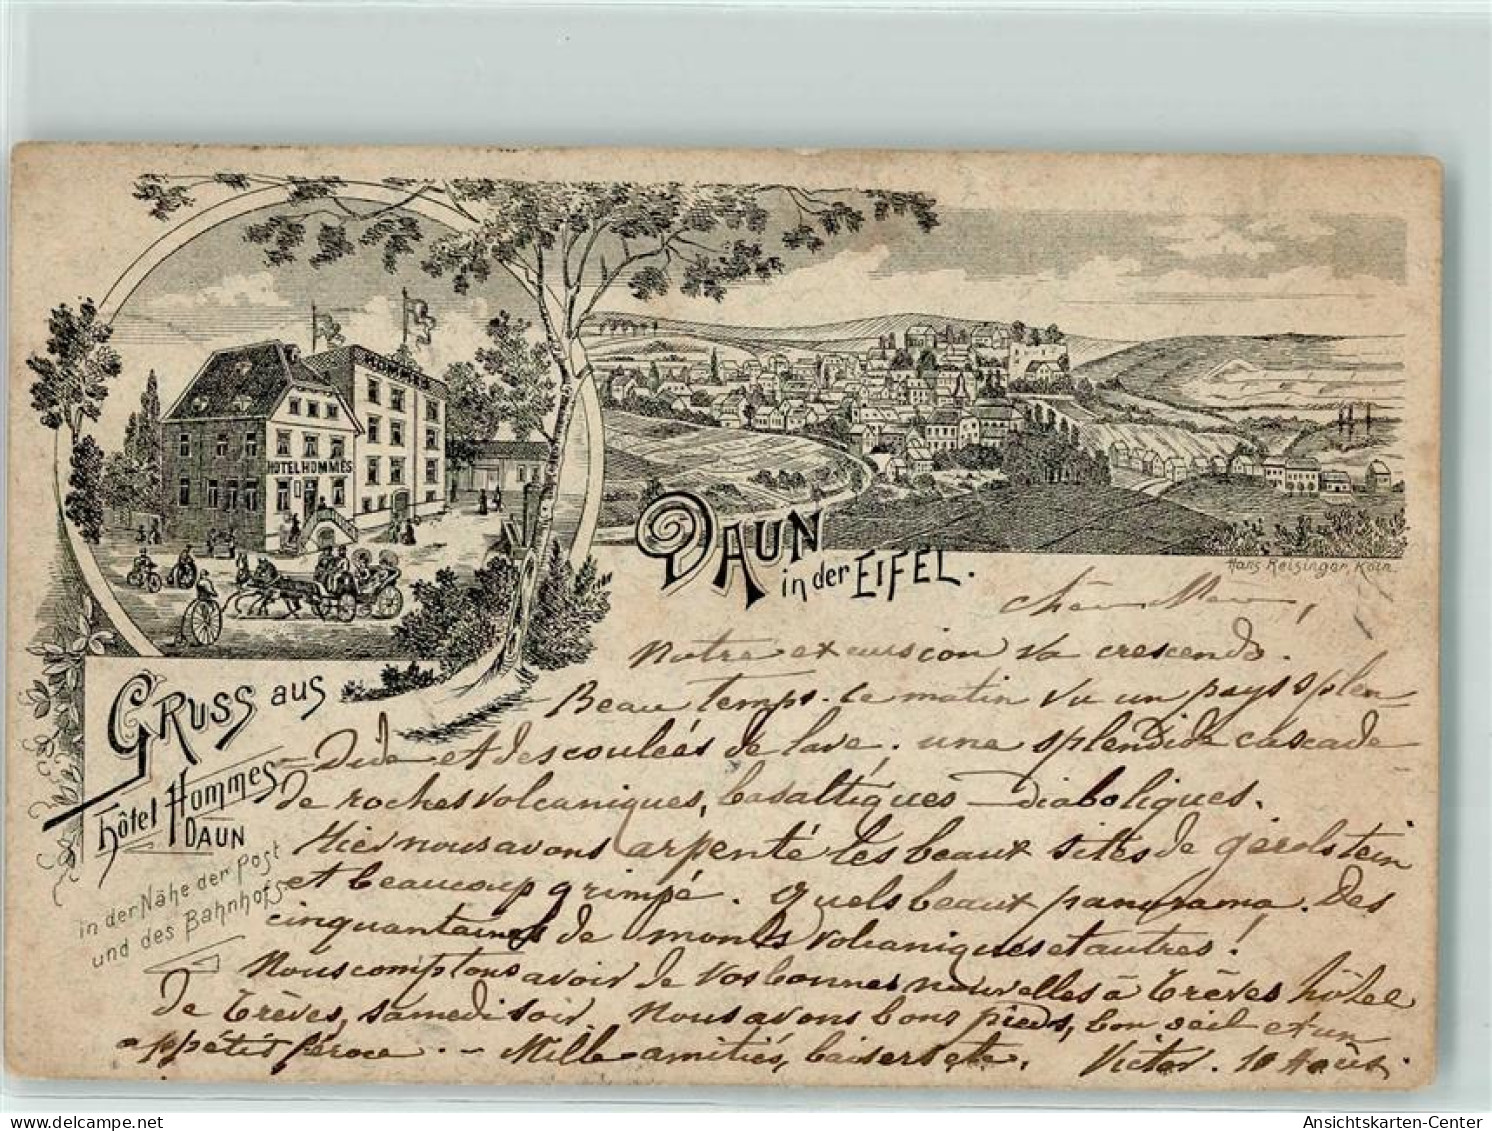 HOMMES
HOTEL HOMMES
DAUN
in der EIFEL.
Hans Reisinger, Köln.
GRUSS aus
hôtel Hommes
DAUN
in der Nähe der Post
und des Bahnhofs
Notre excursion va crescendo.
Beau temps. Ce matin vu un pays splen-
dide et des coulées de lave, une splendide cascade
de roches volcaniques, basaltiques - diaboliques.
Hier nous avons arpenté les beaux sites de gérolstein
et beaucoup grimpé. Quels beaux panorama. Des
cinquantaines de monts volcaniques et autres!
Nous comptons avoir de vos bonnes nouvelles à Trèves hôtel
de Trèves, samedi soir. Nous avons bons pieds, bon oeil et un
appétit féroce. - Mille amitiés, baisers etc. Victor. 10 Août.
Ansichtskarten-Center